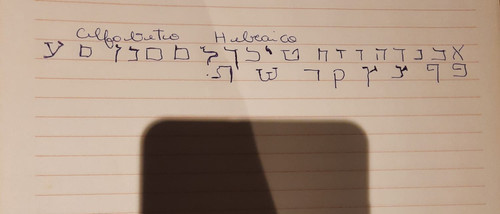 Alfabeto Hebraico
א ב ג ד ה ו ז ח ט י כ ך ל מ ם נ ן ס ע
פ ף צ ץ ק ר ש ת.